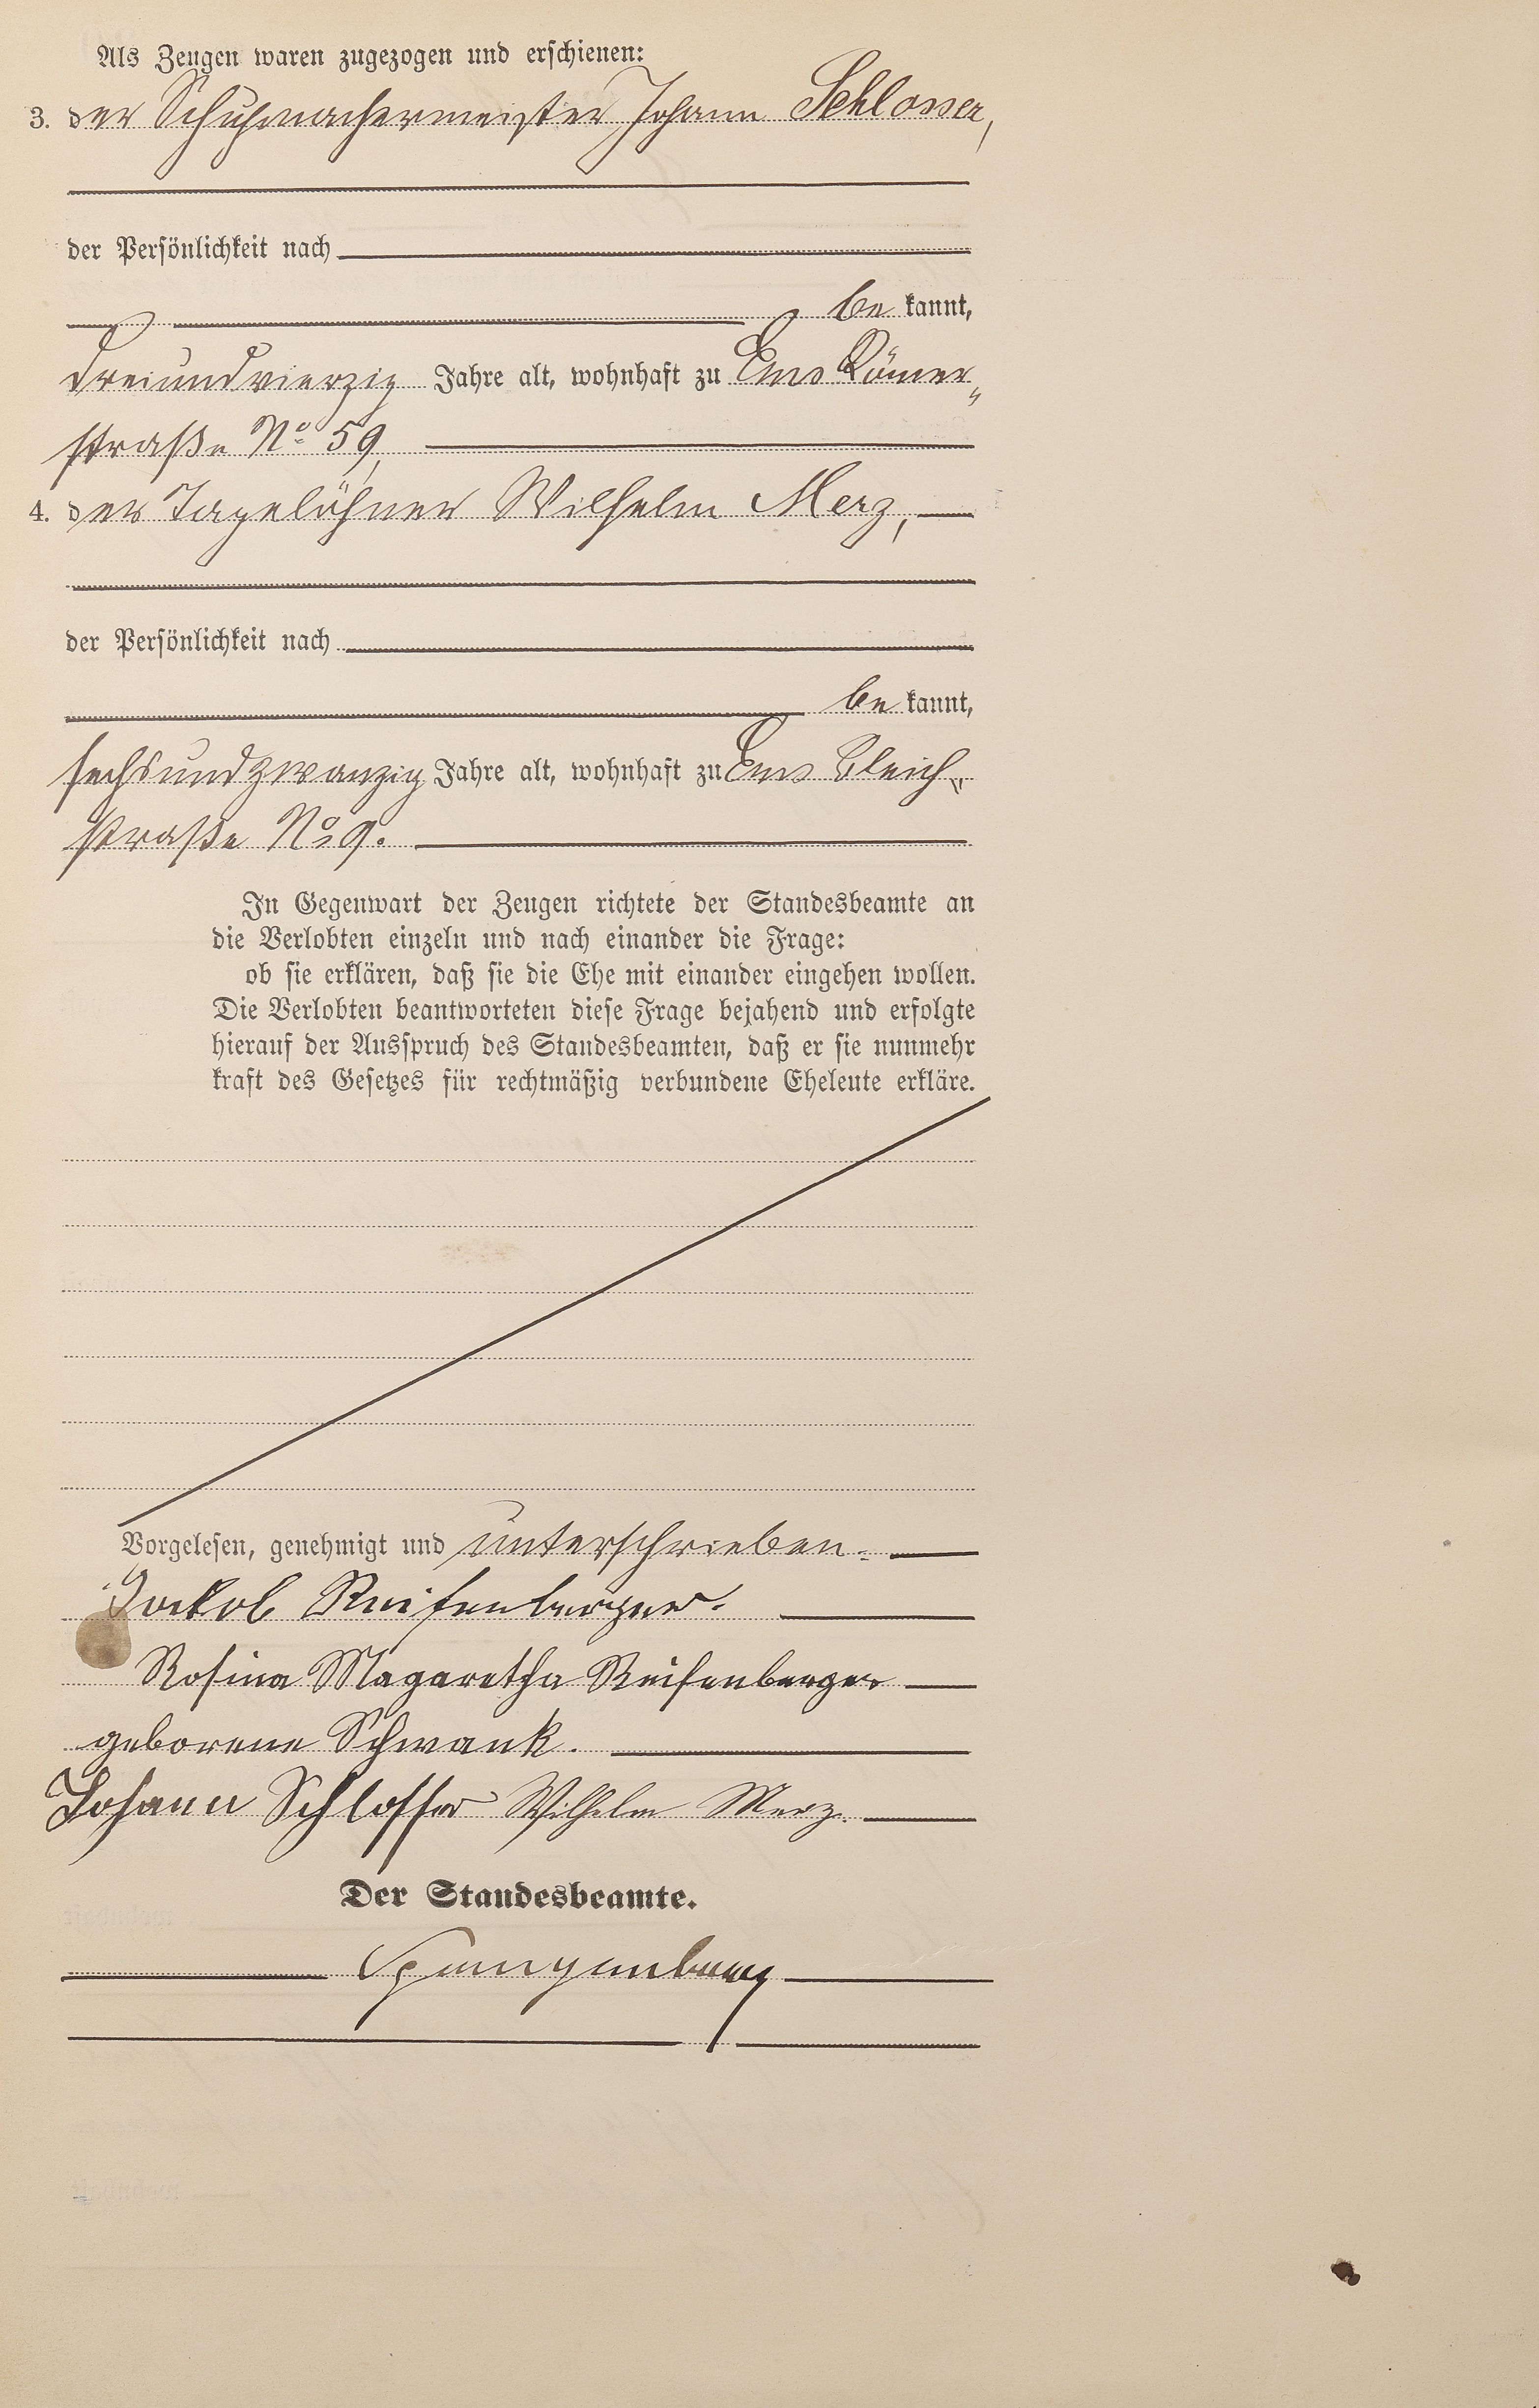 Als Zeugen waren zugezogen und erschienen:
3. der Schuhmachermeister Johann Schlosser,
der Persönlichkeit nach
be kannt,
dreiundvierzig Jahre alt, wohnhaft zu Ems Römer„
straße No 59,
4. der Tagelöhner Wilhelm Merz,
der Persönlichkeit nach
be kannt,
sechsundzwanzig Jahre alt, wohnhaft zu Ems Bleich„
straße No 9.
In Gegenwart der Zeugen richtete der Standesbeamte an
die Verlobten einzeln und nach einander die Frage:
ob sie erklären, daß sie die Ehe mit einander eingehen wollen.
Die Verlobten beantworteten diese Frage bejahend und erfolgte
hierauf der Ausspruch des Standesbeamten, daß er sie nunmehr
kraft des Gesetzes für rechtmäßig verbundene Eheleute erkläre.
Vorgelesen, genehmigt und unterschrieben.
Jackob Reifenberger.
Rosina Magaretha Reifenberger
geborene Schwank.
Johann Schlosser Wilhelm Merz.
Der Standesbeamte.
Spangenberg